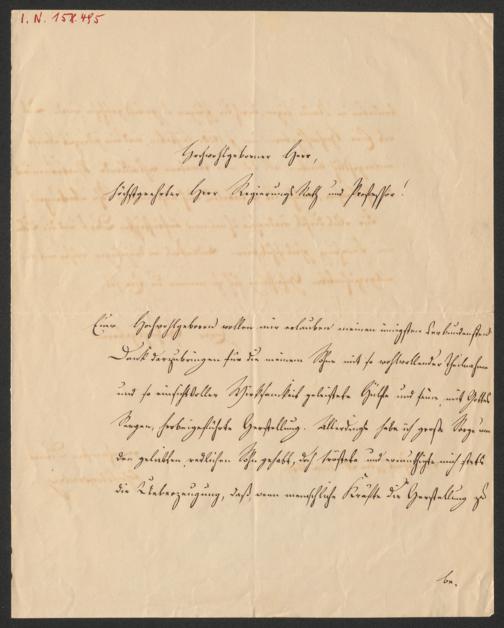 I. N. 158.495
Hochwohlgeborner Herr,
Höchstgeehrter Herr Regierungs Rath und Professor!
Euer Hochwohlgeboren wollen mir erlauben meinen innigsten verbundensten
Dank darzubringen für die meinem Sohn mit so wohlwollender Theilnahme
und so einsichtsvoller Wirksamkeit geleistete Hülfe und seine, mit Gottes
Segen, herbeigeführte Herstellung. Allerdings habe ich große Sorge um
den geliebten redlichen Sohn gehabt, doch tröstete und ermuthigte mich stets
die Ueberzeugung, daß wenn menschliche Kräfte die Herstellung zu
be.